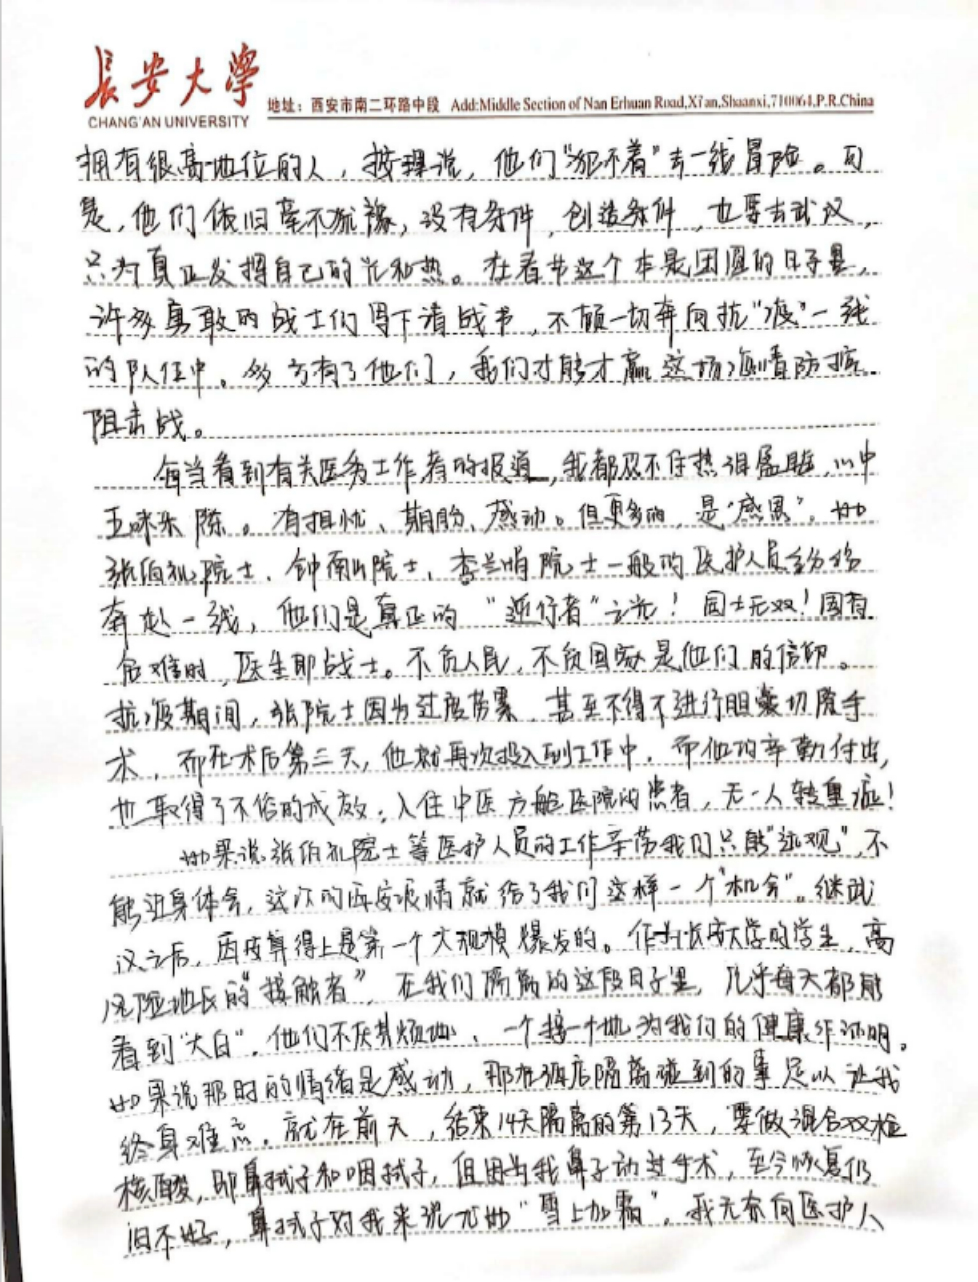 長安大學
CHANG'AN UNIVERSITY
地址：西安市南二环路中段 Add:Middle Section of Nan Erhuan Road,Xi'an,Shaanxi,710064,P.R.China
拥有很高地位的人，按理说，他们“犯不着”去一线冒险。可
是，他们依旧毫不犹豫，没有条件，创造条件，也要去武汉，
只为真正发挥自己的光和热。在春节这个本是团圆的日子里，
许多勇敢的战士们写下请战书，不顾一切奔向抗“疫”一线
的队伍中。多亏有了他们，我们才能才赢这场疫情防控
阻击战。
每当看到有关医务工作者的报道，我都忍不住热泪盈眶，心中
五味杂陈。有担忧、期盼、感动。但更多的，是“感恩”，如
张伯礼院士、钟南山院士、李兰娟院士一般的医护人员纷纷
奔赴一线，他们是真正的“逆行者”之光！国士无双！国有
危难时，医生即战士。不负人民，不负国家是他们的信仰。
抗疫期间，张院士因为过度劳累，甚至不得不进行胆囊切除手
术，而在术后第三天，他就再次投入到工作中，而他的辛勤付出，
也取得了不俗的成效，入住中医方舱医院的患者，无一人转重症！
如果说张伯礼院士等医护人员的工作辛劳我们只能“远观”，不
能近身体会，这次的西安疫情就给了我们这样一个“机会”。继武
汉之后，西安算得上是第一个大规模爆发的。作为长安大学的学生，高
风险地区的“接触者”，在我们隔离的这段日子里，几乎每天都能
看到“大白”，他们不厌其烦地、一个接一个地为我们的健康作证明。
如果说那时的情绪是感动，那在酒店隔离碰到的事足以让我
终身难忘。就在前天，结束14天隔离的第13天，要做混合双检
核酸，即鼻拭子和咽拭子，但因为我鼻子动过手术，至今恢复仍
旧不好，鼻拭子对我来说尤如“雪上加霜”，我无奈向医护人